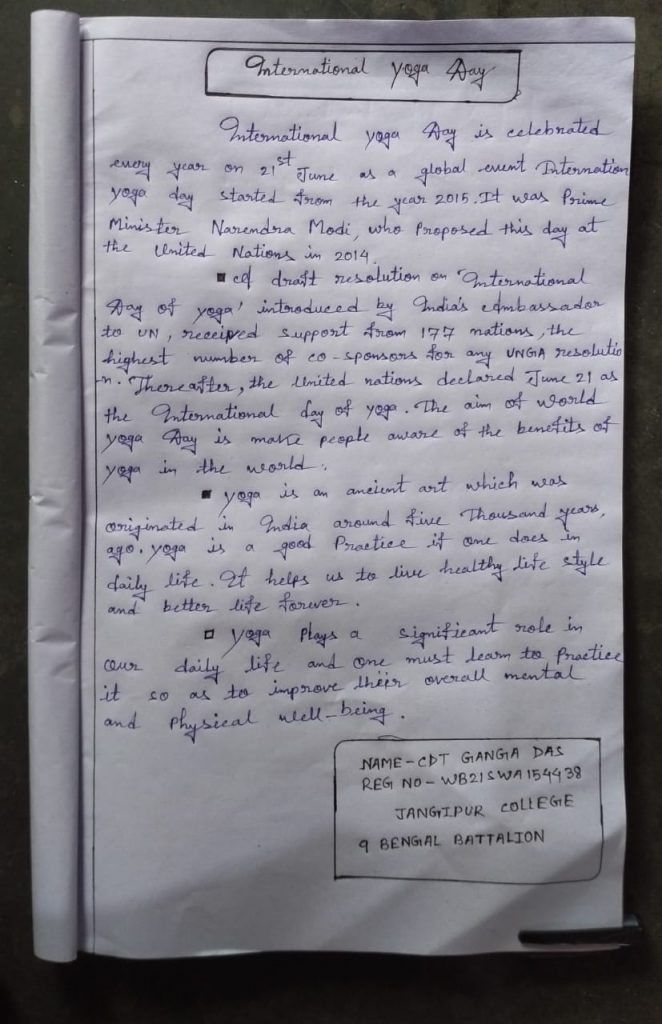 International Yoga Day
International yoga Day is celebrated
every year on 21st June as a global event Internation
yoga day started from the year 2015. It was Prime
Minister Narendra Modi, who Proposed this day at
the United Nations in 2014.
▪ A draft resolution on 'International
Day of yoga' introduced by India's Ambassador
to UN, received support from 177 nations, the
highest number of co-sponsors for any UNGA resolutio
-n. Thereafter, the United nations declared June 21 as
the International day of yoga. The aim of world
yoga Day is make people aware of the benefits of
yoga in the world.
▪ yoga is an ancient art which was
originated in India around five Thousand years,
ago. yoga is a good Practice if one does in
daily life. It helps us to live healthy life style
and better life forever.
▫ yoga Plays a significant role in
our daily life and one must learn to Practice
it so as to improve their overall mental
and Physical well-being.
NAME-CDT GANGA DAS
REG NO-WB21SWA154438
JANGIPUR COLLEGE
9 BENGAL BATTALION